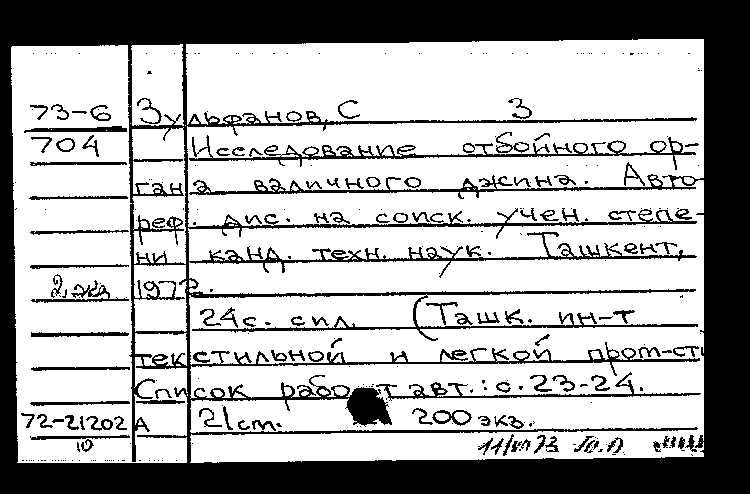 73-6 Зульфанов, С 3
704 Исследование отбойного ор-
гана валичного джина. Авто-
реф. дис. на соиск. учен. степе-
ни канд. техн. наук. Ташкент,
2 экз 1972.
24с. с ил. (Ташк. ин-т
текстильной и легкой пром-сти
Список работ авт.: с. 23-24.
72-21202 А 21 cm. 200 экз.
10